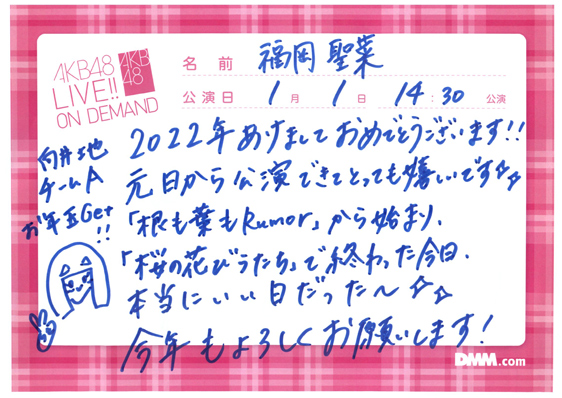 AKB48
LIVE!!
ON DEMAND
AKB
48
名前 福岡 聖菜
公演日 1月 1日 14:30 公演
2022年あけましておめでとうございます!!
元日から公演できてとっても嬉しいです☆☆
「根も葉もRumor」から始まり、
「桜の花びらたち」で終わった今日、
本当にいい日だった〜☆☆
今年もよろしくお願いします!
向井地
チームA
お年玉Get
!!
DMM.com